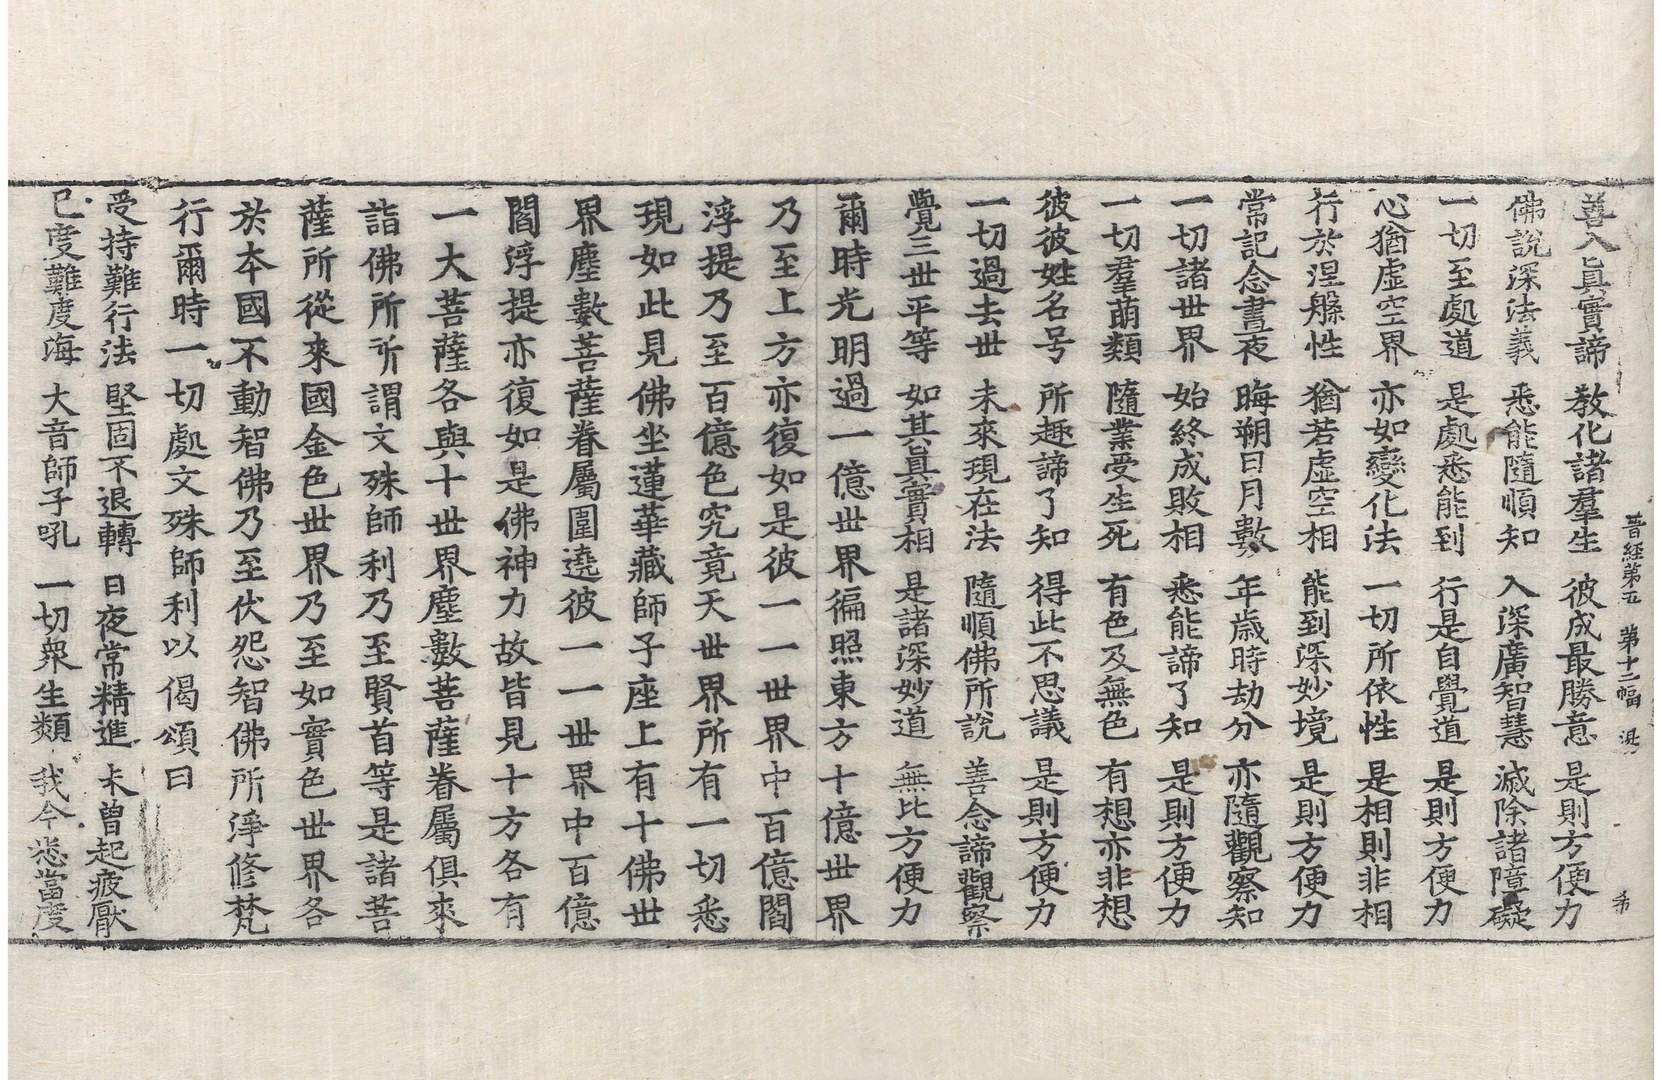 晋経第五　第十三幅
善入眞實諦　教化諸羣生　彼成最勝意　是則方便力
佛說深法義　悉能隨順知　入深廣智慧　滅除諸障礙
一切至處道　是處悉能到　行是自覺道　是則方便力
心猶虛空界　亦如變化法　一切所依性　是相則非相
行於涅槃性　猶若虛空相　能到深妙境　是則方便力
常記念晝夜　晦朔日月數　年歲時劫分　亦隨觀察知
一切諸世界　始終成敗相　悉能諦了知　是則方便力
一切羣萌類　隨業受生死　有色及無色　有想亦非想
彼彼姓名号　所趣諦了知　得此不思議　是則方便力
一切過去世　未來現在法　隨順佛所說　善念諦觀察
覺三世平等　如其眞實相　是諸深妙道　無比方便力
爾時光明過一億世界徧照東方十億世界
乃至上方亦復如是彼一一世界中百億閻
浮提乃至百億色究竟天世界所有一切悉
現如此見佛坐蓮華藏師子座上有十佛世
界塵數菩薩眷屬圍遶彼一一世界中百億
閻浮提亦復如是佛神力故皆見十方各有
一大菩薩各與十世界塵數菩薩眷屬俱來
詣佛所所謂文殊師利乃至賢首等是諸菩
薩所從來國金色世界乃至如實色世界各
於本國不動智佛乃至伏怨智佛所淨修梵
行爾時一切處文殊師利以偈頌曰
受持難行法　堅固不退轉　日夜常精進　未曾起疲厭
已度難度海　大音師子吼　一切衆生類　我今悉當度